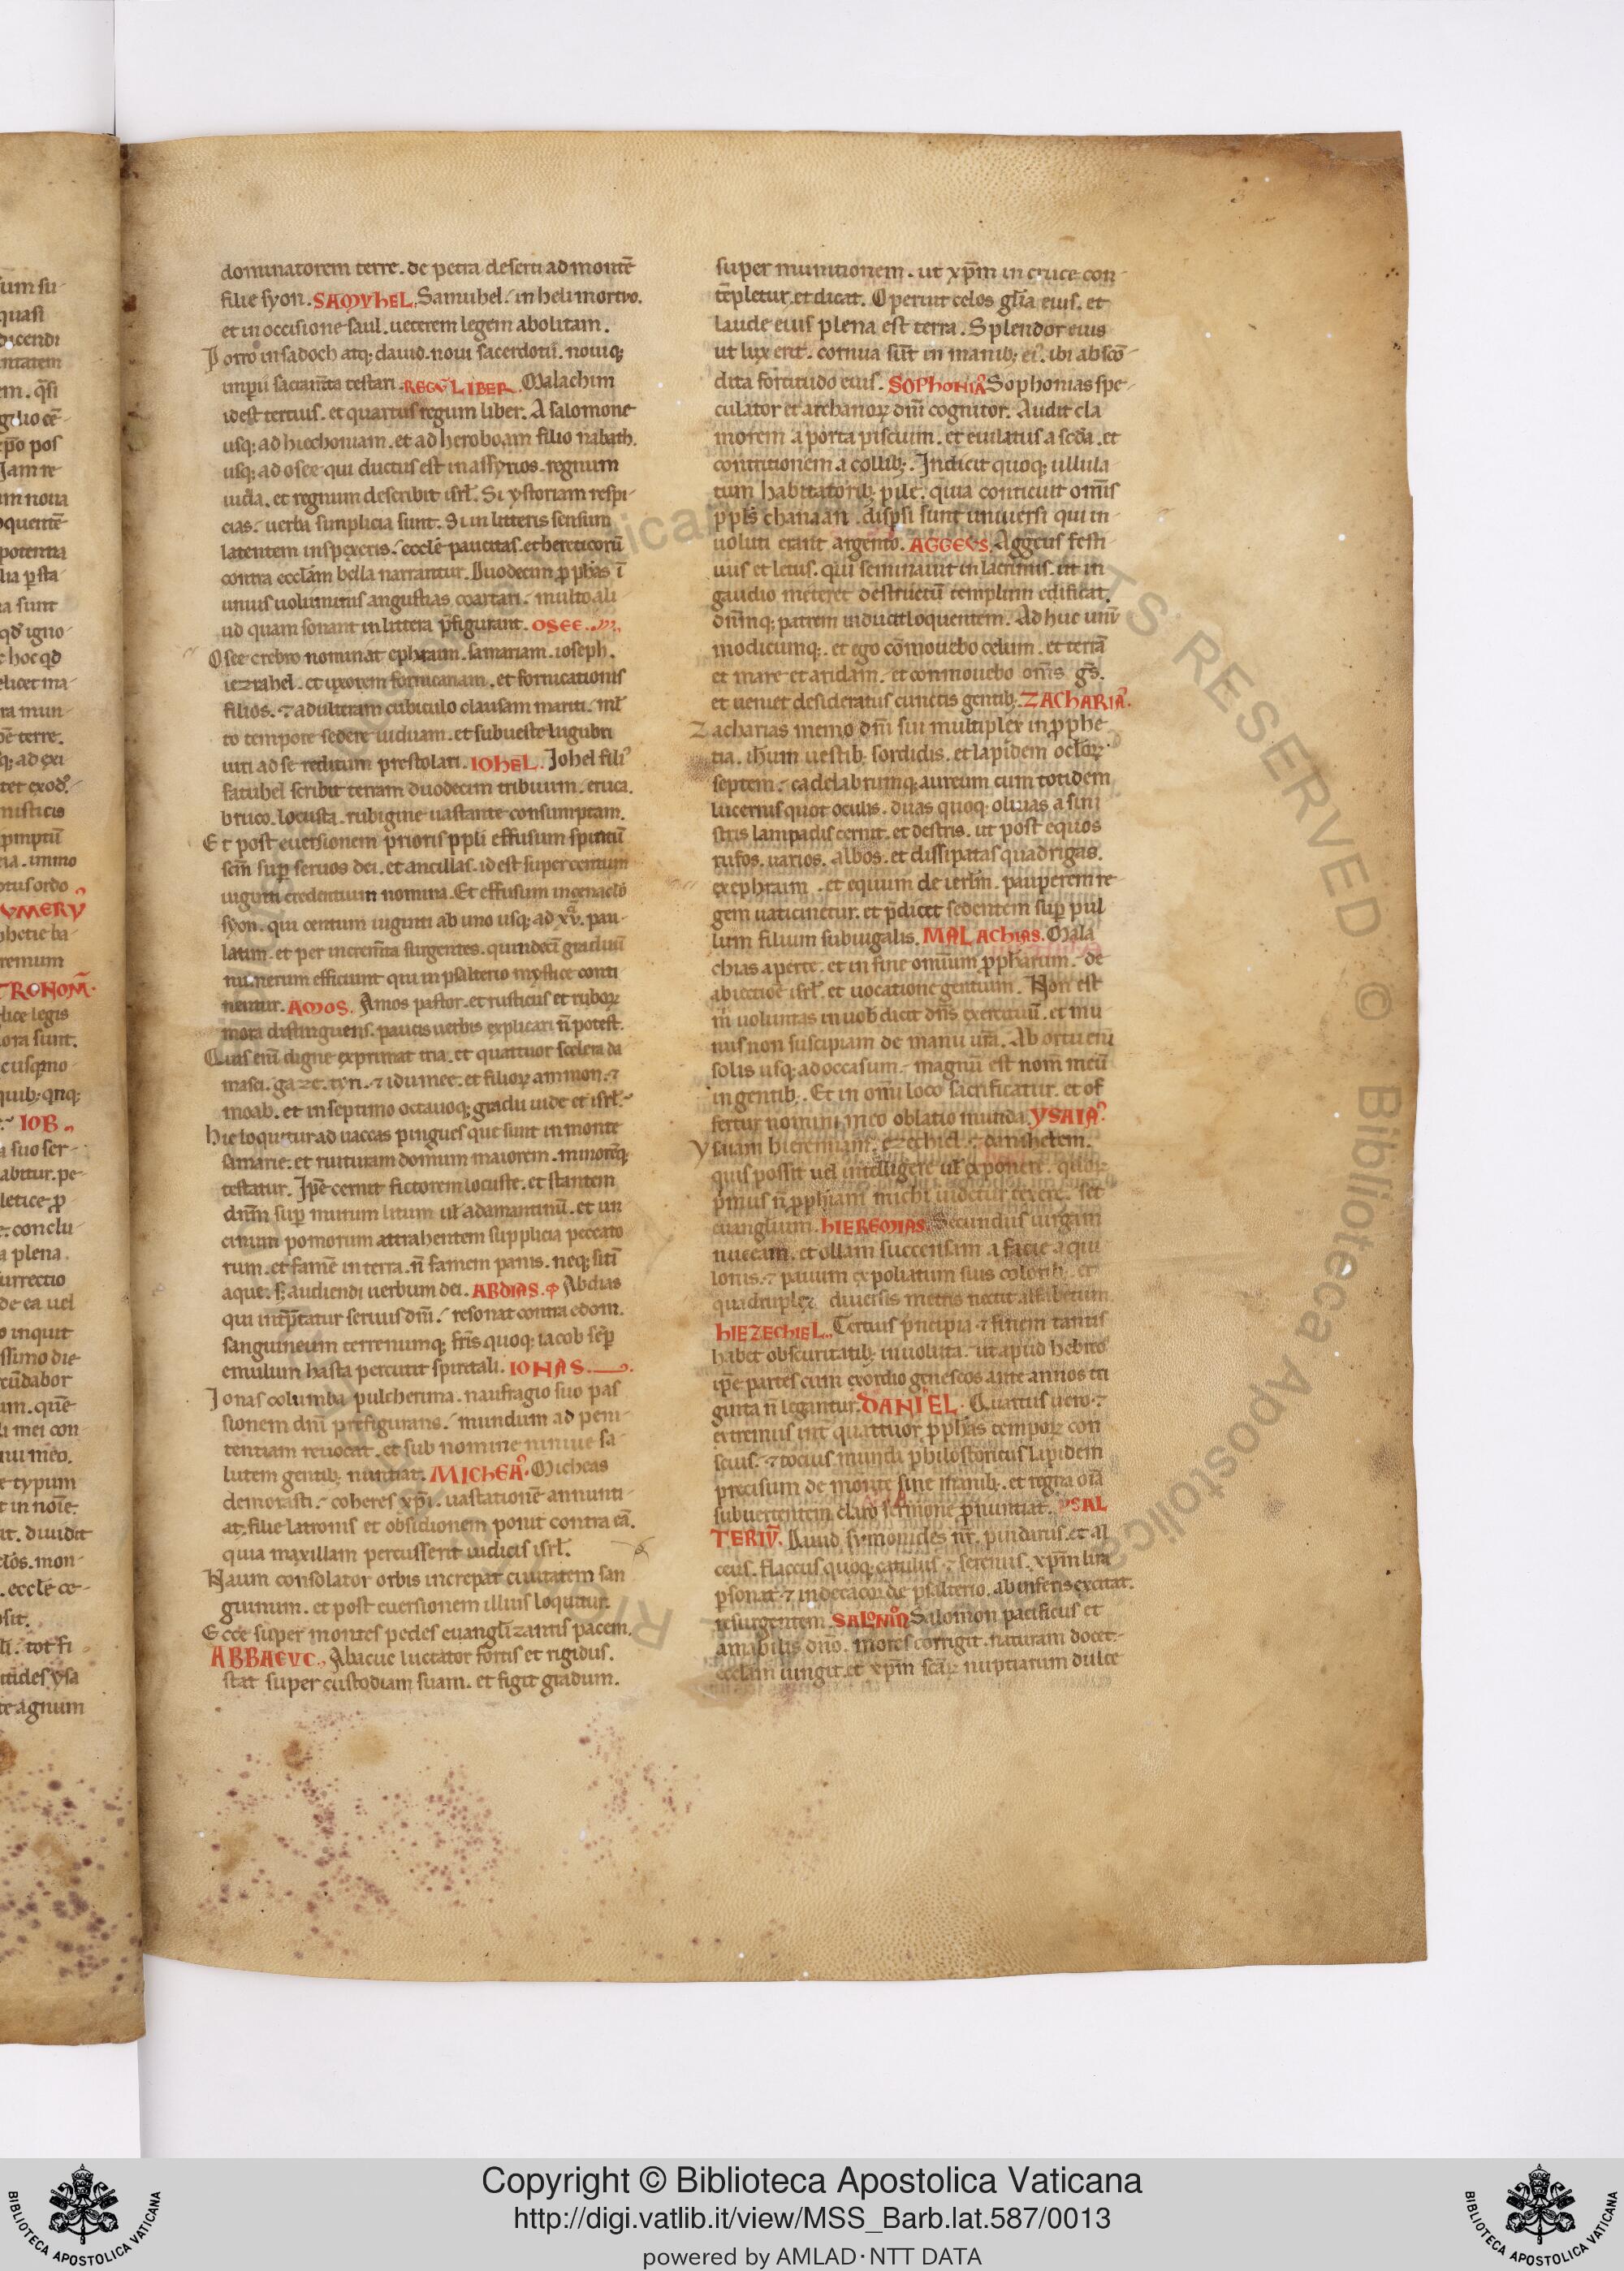 dominatorem terre. de petra deserti ad montē
filie syon. SAMVHEL. Samuhel. in heli mortuo.
et in occisione saul. ueterem legem abolitam.
Porro in sadoch atq; dauid. noui sacerdotii. nouiq;
imperii sacram̄ta testari. REGV̄ LIBER. Malachim
idest tertius. et quartus regum liber. A salomone
usq; ad hiechoniam. et ad hieroboam filio nabath.
usq; ad osee qui ductus est in assyrios. regnum
iuda. et regnum describit isrl̄. Si ystoriam respi
cias. uerba simplicia sunt. Si in litteris sensum
latentem inspexeris. ecclē paucitas. et hereticorū
contra ecclām bella narrantur. Duodecim pphas ī
unius uoluminis angustias coartati. multo ali
ud quam sonant in littera p̄figurant. OSEE.
Osee crebro nominat ephraim. samariam. ioseph.
iezrahel. et uxorem fornicariam. et fornicationis
filios. ⁊ adulteram cubiculo clausam mariti. ml̄
to tempore sedere uiduam. et sub ueste lugubri
uiri ad se reditum prestolari. IOHEL. Johel fili
fatuhel scribit terram duodecim tribuum. eruca.
bruco. locusta. rubigine uastante consumptam.
Et post euersionem prioris ppli effusum spiritū
scm̄ sup seruos dei. et ancillas. id est super centum
uiginti credentium nomina. Et effusum in cenaclo
syon. qui centum uiginti ab uno usq; ad xv. pau
latim. et per increm̄ta surgentes. quindecī graduū
numerum efficiunt qui in psalterio mystice conti
nentur. AMOS. Amos pastor. et rusticus et rubor
mora distinguens. paucis uerbis explicari n̄ potest.
Quis enī digne exprimat tria. et quattuor scelera da
masci. gaze. tyri. ⁊ idumee. et filior ammon. ⁊
moab. et in septimo octauoq; gradu iude et isrl̄.
hic loquitur ad uaccas pingues que sunt in monte
samarie. et ruituram domum maiorem. minorēq;
testatur. Ipe cernit fictorem locuste. et stantem
dn̄m sup murum litum ul̄ adamantinū. et un
cinum pomorum attrahentem supplicia peccato
rum. et famē in terra. n̄ famem panis. neq; sitī
aque. s; audiendi uerbum dei. ABDIAS. Abdias
qui intp̄tatur seruus dn̄i. resonat contra edom.
sanguineum terrenumq; fr̄is quoq; iacob sēp
emulum hasta percutit spiritali. IONAS.
Jonas columba pulcherrima. naufragio suo pas
sionem dn̄i prefigurans. mundum ad peni
tentiam reuocat. et sub nomine niniue sa
lutem gentib; nuntiat. MICHEA. Micheas
demorasti. coheres xp̄i. uastationē annunti
at. filie latronis et obsidionem ponit contra eā.
quia maxillam percusserit iudicis isrl̄.
Naum consolator orbis increpat ciuitatem san
guinum. et post euersionem illius loquitur.
Ecce super montes pedes euangl̄izantis pacem.
ABBACVC. Abacuc luctator fortis et rigidus.
stat super custodiam suam. et figit gradum.
super munitionem. ut xp̄m in cruce con
tēpletur. et dicat. Operuit celos gl̄ia eius. et
laude eius plena est terra. Splendor eius
ut lux erit. cornua sūt in manib; ei. ibi abscō
dita fortitudo eius. SOPHONIA Sophonias spe
culator et archanor dn̄i cognitor. Audit cla
morem a porta piscium. et eiulatus a scda. et
contritionem a collib;. Indicit quoq; ullula
tum habitatorib; pile. quia conticuit omīs
ppls̄ chanaan. dispsi sunt uniuersi qui in
uoluti erant argento. AGGEVS. Aggeus festi
uus et letus. qui seminauit in lacrimis. ut in
gaudio meteret destructū templum edificat.
dn̄mq; patrem inducit loquentem. Ad huc unū
modicumq;. et ego cōmouebo celum. et terrā
et mare et aridam. et commouebo om̄s gs̄.
et ueniet desideratus cunctis gentib;. ZACHARIA.
Zacharias memo dn̄i sui multiplex in pphe
tia. ihum uestib; sordidis. et lapidem oclor
septem. cadelabrumq; aureum cum totidem
lucernis quot oculis. duas quoq; oliuas a sini
stris lampadis cernit. et destris. ut post equos
rufos. uarios. albos. et dissipatas quadrigas.
ex ephraim. et equum de ierlm̄. pauperem re
gem uaticinetur. et p̄dicet sedentem sup pul
lum filium subiugalis. MALACHIAS. Mala
chias aperte. et in fine omnium ppharum. de
abiectiōe isrl̄. et uocatione gentium. Non est
m̄ uoluntas in uob dicit dn̄s exercituū. et mu
nus non suscipiam de manu ur̄a. Ab ortu enī
solis usq; ad occasum. magnū est nom̄ meū
in gentib;. Et in om̄i loco sacrificatur. et of
fertur nomini meo oblatio munda. YSAIA.
Ysaiam hieremiam. ezechiel. ⁊ danihelem.
quis possit uel intelligere ul̄ exponere. quor
p̄mus n̄ pphiam michi uidetur texere. set
euanglium. HIEREMIAS. Secundus uirgam
nuceam. et ollam succensam a facie aqui
lonis. ⁊ pauum expoliatum suis colorib;. et
quadruplex diuersis metris nectit alfabetum.
HIEZECHIEL. Tertius principia ⁊ finem tantis
habet obscuritatib; inuoluta. ut apud hebreos
ipe partes cum exordio geneseos ante annos tri
ginta n̄ legantur. DANIEL. Quartus uero. ⁊
extremus int̄ quattuor pphas tempor con
scius. ⁊ tocius mundi philostoricus lapidem
precisum de monte sine manib;. et regna oīa
subuertentem. claro sermone pnuntiat. PSAL
TERIV̄. Dauid symonides nr̄. pindarus. et al
ceus. flaccus quoq; catulus. ⁊ serenus. xp̄m lira
psonat. ⁊ in decacordo psalterio. ab inferis excitat.
resurgentem. SALOMŌ Salomon pacificus et
amabilis dn̄o. mores corrigit. naturam docet.
ecclam iungit. et xp̄m scār nuptiarum dulce
Copyright © Biblioteca Apostolica Vaticana
http://digi.vatlib.it/view/MSS_Barb.lat.587/0013
powered by AMLAD·NTT DATA
BIBLIOTECA APOSTOLICA VATICANA
BIBLIOTECA APOSTOLICA VATICANA